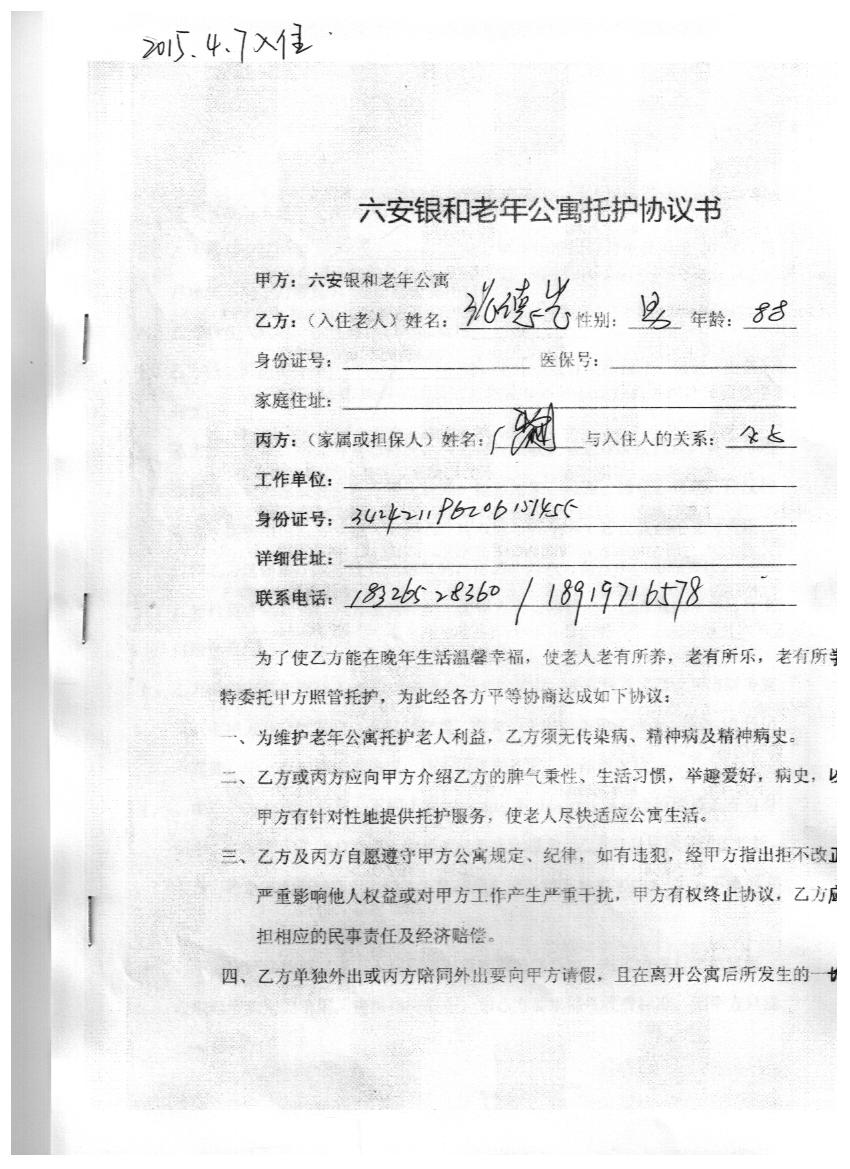 2015.4.7入住
六安银和老年公寓托护协议书
甲方：六安银和老年公寓
乙方：（入住老人）姓名： 德 性别：男 年龄：88
身份证号： 医保号：
家庭住址：
丙方：（家属或担保人）姓名： 与入住人的关系：
工作单位：
身份证号：342421196206151455
详细住址：
联系电话：18326528360 / 18919716578
为了使乙方能在晚年生活温馨幸福，使老人老有所养，老有所乐，老有所学
特委托甲方照管托护，为此经各方平等协商达成如下协议：
一、为维护老年公寓托护老人利益，乙方须无传染病、精神病及精神病史。
二、乙方或丙方应向甲方介绍乙方的脾气秉性、生活习惯，举趣爱好，病史，以
甲方有针对性地提供托护服务，使老人尽快适应公寓生活。
三、乙方及丙方自愿遵守甲方公寓规定、纪律，如有违犯，经甲方指出拒不改正
严重影响他人权益或对甲方工作产生严重干扰，甲方有权终止协议，乙方应
担相应的民事责任及经济赔偿。
四、乙方单独外出或丙方陪同外出要向甲方请假，且在离开公寓后所发生的一切